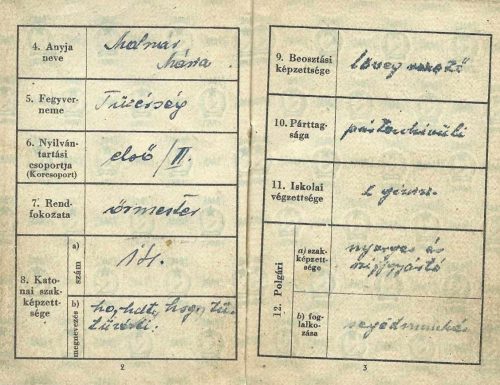 4. Anyja
neve
Molnár
Mária
5. Fegyver-
neme
Tüzérség
6. Nyilván-
tartási
csoportja
(Korcsoport)
első / II.
7. Rend-
fokozata
őrmester
8. Kato-
nai szak-
képzett-
sége
a)
szám
b)
megnevezés
tüzérsti.
2
9. Beosztási
képzettsége
löveg
10. Párttag-
sága
pártonkívüli
11. Iskolai
végzettsége
12. Polgári
a) szak-
képzett-
sége
és
b) fog-
lalko-
zása
segédmunkás
3